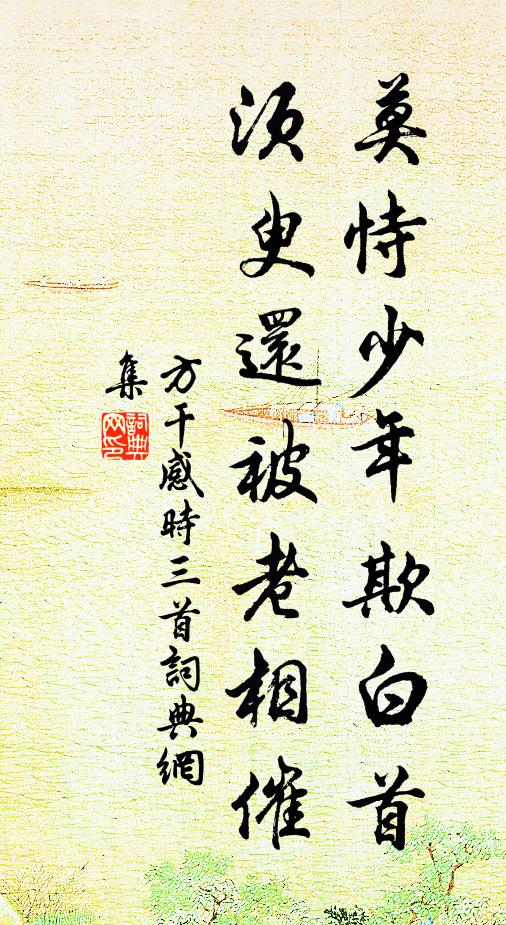 莫恃少年欺白首
須臾還被老相催
方干感時三首詞典網
集
詞典
网印